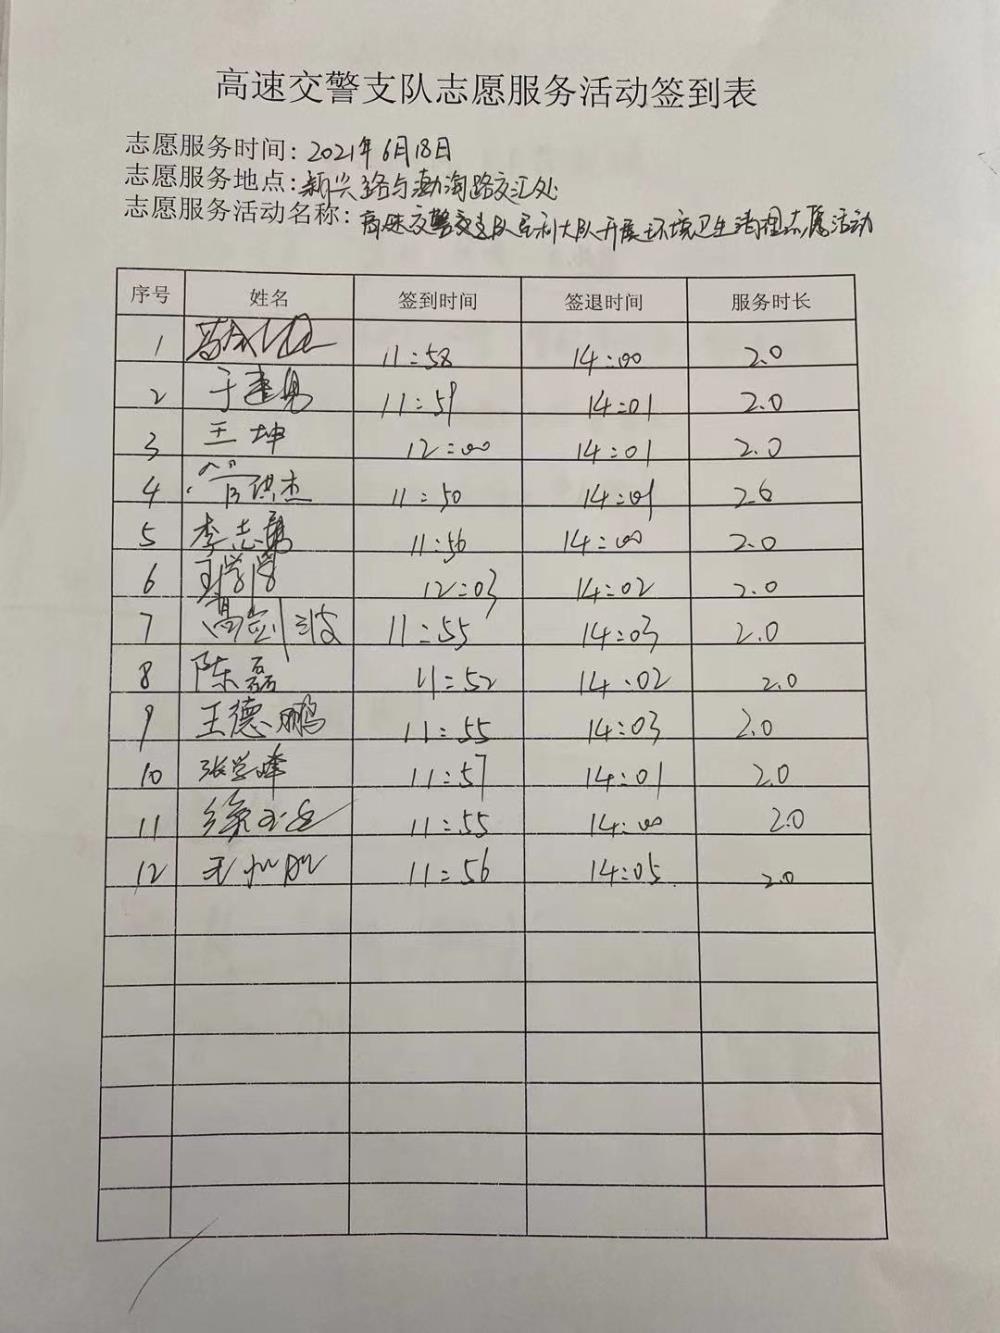 高速交警支队志愿服务活动签到表
志愿服务时间：2021年6月18日
志愿服务地点：新兴路与渤海路交汇处
志愿服务活动名称：高速交警支队垦利大队开展环境卫生清理志愿活动
序号 姓名 签到时间 签退时间 服务时长
1 11:58 14:00 2.0
2 于建勇 11:59 14:01 2.0
3 王坤 12:00 14:01 2.0
4 管洪杰 11:50 14:01 2.0
5 李志勇 11:56 14:00 2.0
6 王学 12:03 14:02 2.0
7 高剑波 11:55 14:03 2.0
8 陈磊 11:52 14:02 2.0
9 王德鹏 11:55 14:03 2.0
10 张学峰 11:57 14:01 2.0
11 徐 11:55 14:00 2.0
12 王 11:56 14:05 2.0